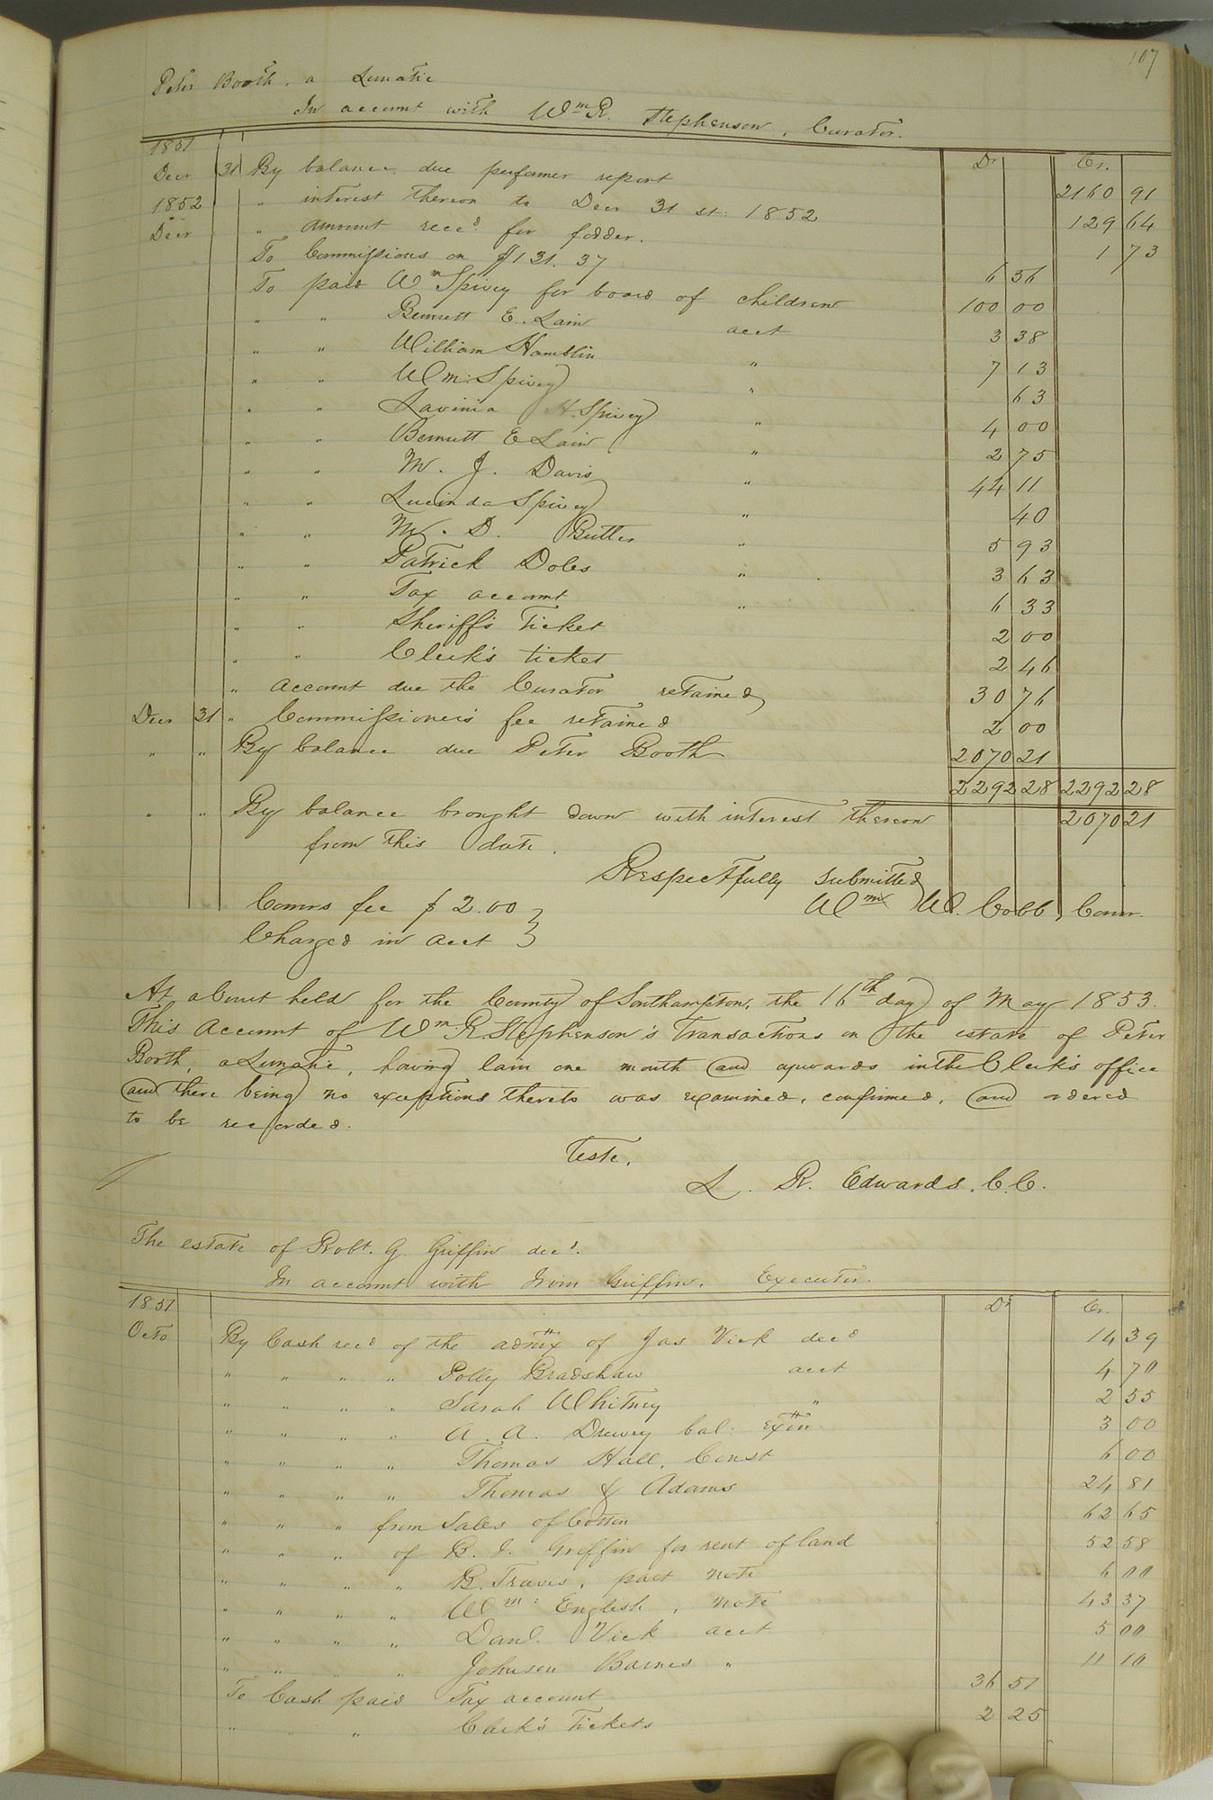 107
Peter Booth, a Lunatic
In account with Wm R. Stephenson, Curator.
1851 Dr Cr.
Decr 31 By balance due pr former report 2160 91
1852 " interest thereon to Decr 31 st: 1852 129 64
Decr " amount recd for fodder. 1 73
To Commissions on $131.37 6 56
To paid Wm Spivey for board of children 100 00
" " Bennett E. Lain acct 3 38
" " William Hamblin " 7 13
" " Wm: Spivey " 63
" " Lavinia H. Spivey " 4 00
" " Bennett E Lain " 2 75
" " M. J. Davis " 44 11
" " Lucinda Spivey " 40
" " M. D. Butler " 5 93
" " Patrick Doles " 3 63
" " Tax account " 6 33
" " Sheriff's Ticket 2 00
" " Clerk's ticket 2 46
" account due the Curator retained 30 76
Decr 31 " Commissioner's fee retained 2 00
" " By balance due Peter Booth 2070 21
2292 28 2292 28
" " By balance brought down with interest thereon 2070 21
from this date.
Respectfully submitted
Wm W. Cobb, Comr.
Comrs fee $2.00
Charged in acct
At a Court held for the County of Southampton, the 16th day of May 1853.
This Account of Wm R. Stephenson's Transactions on the estate of Peter
Booth, a Lunatic, having lain one month and upwards in the Clerk's office
and there being no exceptions thereto was examined, confirmed, and ordered
to be recorded.
Teste,
L. R. Edwards, C.C.
The estate of Robt. G. Griffin decd.
In account with Griffin, Executor.
1851 Dr Cr.
Octo By Cash recd of the admx of Jas Vick decd 14 39
" " " " Polly Bradshaw acct 4 70
" " " " Sarah Whitney " 2 55
" " " " A. A. Drewry bal: exon 3 00
" " " " Thomas Hall, Const 6 00
" " " " Thomas & Adams 24 81
" " " from Sales of Cotton 62 65
" " " of B. J. Griffin for rent of land 52 58
" " " " B. Travis, part note 6 00
" " " " Wm: English, note 43 37
" " " " Danl. Vick acct 5 00
" " " " Johnson Barnes " 11 10
To Cash paid Tax account 36 51
" " Clerk's Tickets 2 25